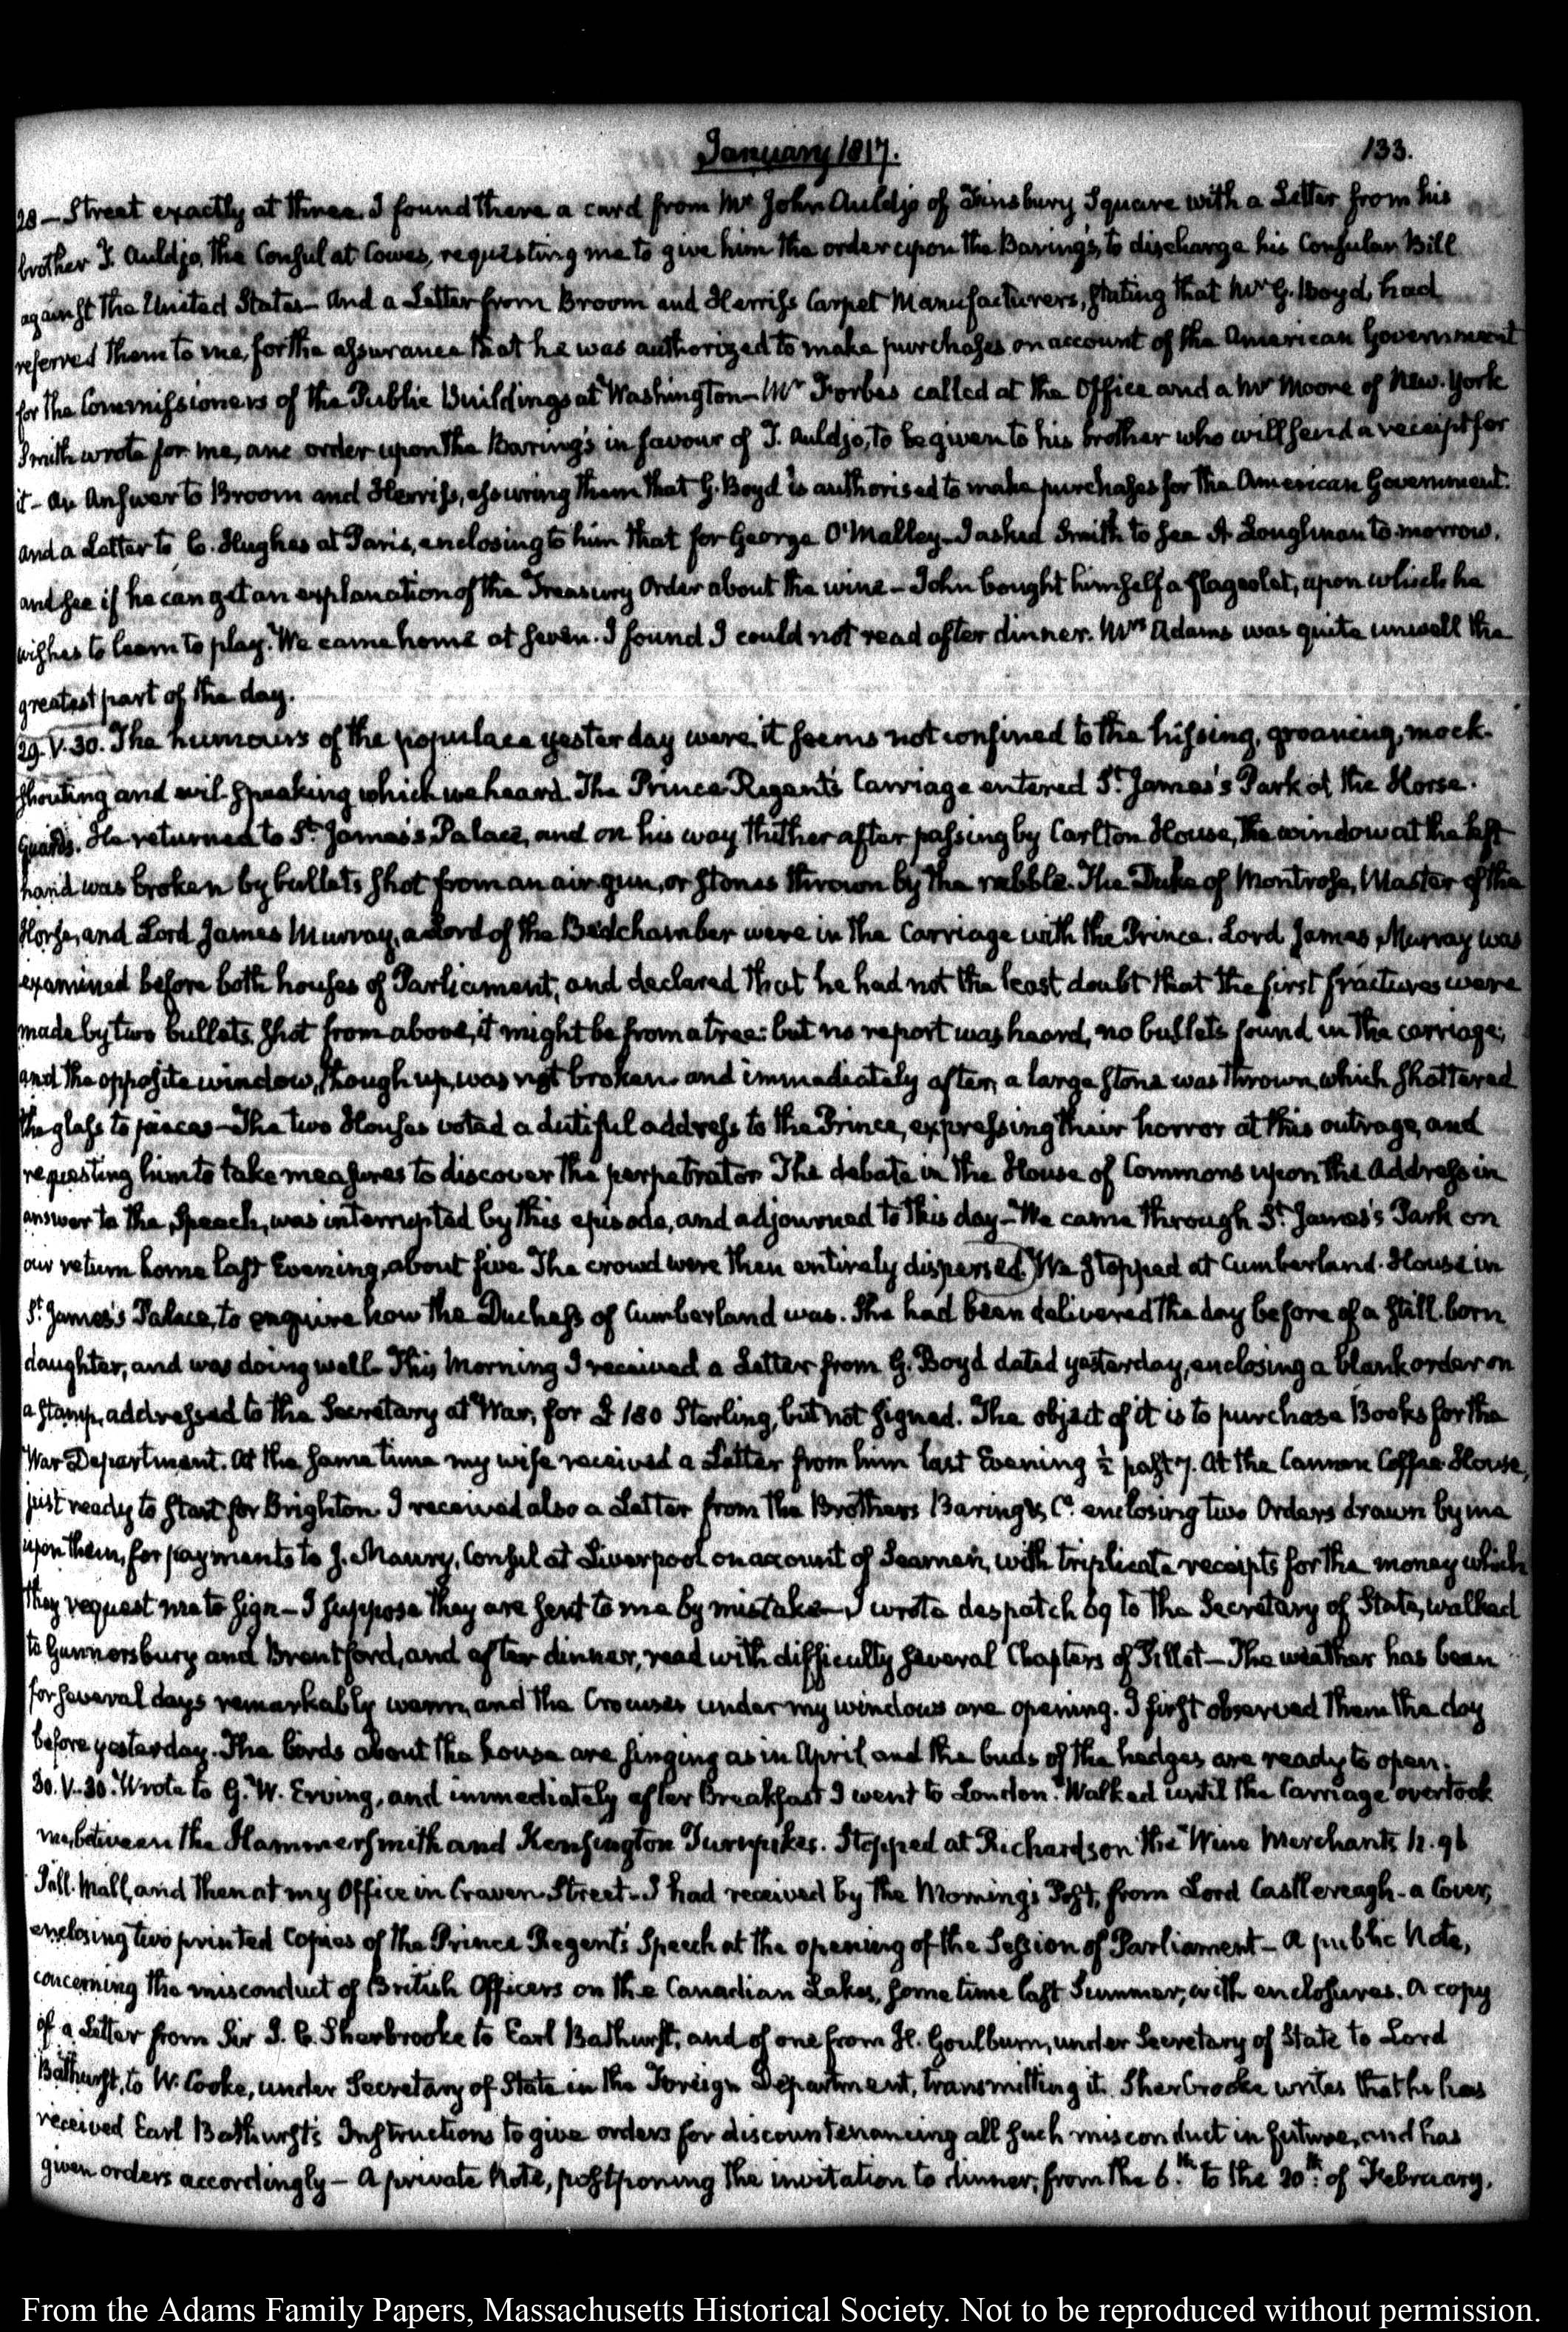 January 1817.
133.
28 — Street exactly at three. I found there a card from Mr. John Auldjo of Finsbury Square with a Letter from his
brother T. Auldjo, the Consul at Cowes, requesting me to give him the order upon the Baring's, to discharge his Consular Bill
against the United States — And a Letter from Broom and Herriss Carpet Manufacturers, stating that Mr G. Boyd, had
referred them to me, for the assurance that he was authorized to make purchases on account of the American Government
for the Commissioners of the Public Buildings at Washington — Mr Forbes called at the Office and a Mr Moore of New-York
Smith wrote for me, an order upon the Baring's in favour of T. Auldjo, to be given to his brother who will send a receipt for
it — An Answer to Broom and Herriss, assuring them that G. Boyd is authorised to make purchases for the American Government.
and a Letter to C. Hughes at Paris, enclosing to him that for George O'Malley — I asked Smith to see A Loughnan to-morrow,
and see if he can get an explanation of the Treasury Order about the wine — John bought himself a flageolet, upon which he
wishes to learn to play. We came home at seven. I found I could not read after dinner. Mrs Adams was quite unwell the
greatest part of the day.
29. V. 30. The humours of the populace yesterday were it seems not confined to the hissing, groaning, mock-
shouting and evil-speaking which we heard. The Prince Regent's Carriage entered St. James's Park at the Horse-
Guards. He returned to St. James's Palace, and on his way thither after passing by Carlton House, the window at the left
hand was broken by bullets shot from an air-gun, or stones thrown by the rabble. The Duke of Montrose, Master of the
Horse, and Lord James Murray, a Lord of the Bedchamber were in the Carriage with the Prince. Lord James Murray was
examined before both houses of Parliament, and declared that he had not the least doubt that the first fractures were
made by two bullets shot from above, it might be from a tree: but no report was heard, no bullets found in the carriage,
and the opposite window, though up, was not broken. and immediately after, a large stone was thrown, which shattered
the glass to pieces — The two Houses voted a dutiful address to the Prince, expressing their horror at this outrage, and
requesting him to take measures to discover the perpetrator The debate in the House of Commons upon the Address in
answer to the Speech, was interrupted by this episode, and adjourned to this day — We came through St. James's Park on
our return home last Evening, about five The crowd were then entirely dispersed. We stopped at Cumberland-House in
St. James's Palace, to enquire how the Duchess of Cumberland was. She had been delivered the day before of a still-born
daughter, and was doing well. This Morning I received a Letter from G. Boyd dated yesterday, enclosing a blank order on
a stamp, addressed to the Secretary at War, for £180 Sterling, but not signed. The object of it is to purchase Books for the
War Department. At the same time my wife received a Letter from him last Evening ½ past 7. At the Cannon Coffee-House,
just ready to start for Brighton I received also a Letter from the Brothers Baring & Co. enclosing two Orders drawn by me
upon them, for payments to J. Maury, Consul at Liverpool on account of Seamen, with triplicate receipts for the money which
they request me to sign — I suppose they are sent to me by mistake — I wrote despatch 69 to the Secretary of State, walked
to Gunnersbury and Brentford, and after dinner, read with difficulty several Chapters of Tillet — The weather has been
for several days remarkably warm, and the Crocuses under my windows are opening. I first observed them the day
before yesterday. The birds about the house are singing as in April and the buds of the hedges are ready to open.
30. V. 30. Wrote to G. W. Erving, and immediately after Breakfast I went to London. Walked until the Carriage overtook
me, between the Hammersmith and Kensington Turnpikes. Stopped at Richardson the Wine Merchants N. 96
Pall-Mall, and then at my Office in Craven-Street. I had received by the Morning's Post, from Lord Castlereagh — a Cover,
enclosing two printed Copies of the Prince Regent's Speech at the opening of the Session of Parliament — A public Note,
concerning the misconduct of British Officers on the Canadian Lakes, some time last Summer, with enclosures. A copy
of a Letter from Sir J. C. Sherbrooke to Earl Bathurst, and of one from H. Goulburn, under Secretary of State to Lord
Bathurst, to W. Cooke, under Secretary of State in the Foreign Department, transmitting it. Sherbrooke writes that he has
received Earl Bathurst's Instructions to give orders for discountenancing all such misconduct in future, and has
given orders accordingly — A private Note, postponing the invitation to dinner, from the 6th. to the 20th. of February.
From the Adams Family Papers, Massachusetts Historical Society. Not to be reproduced without permission.